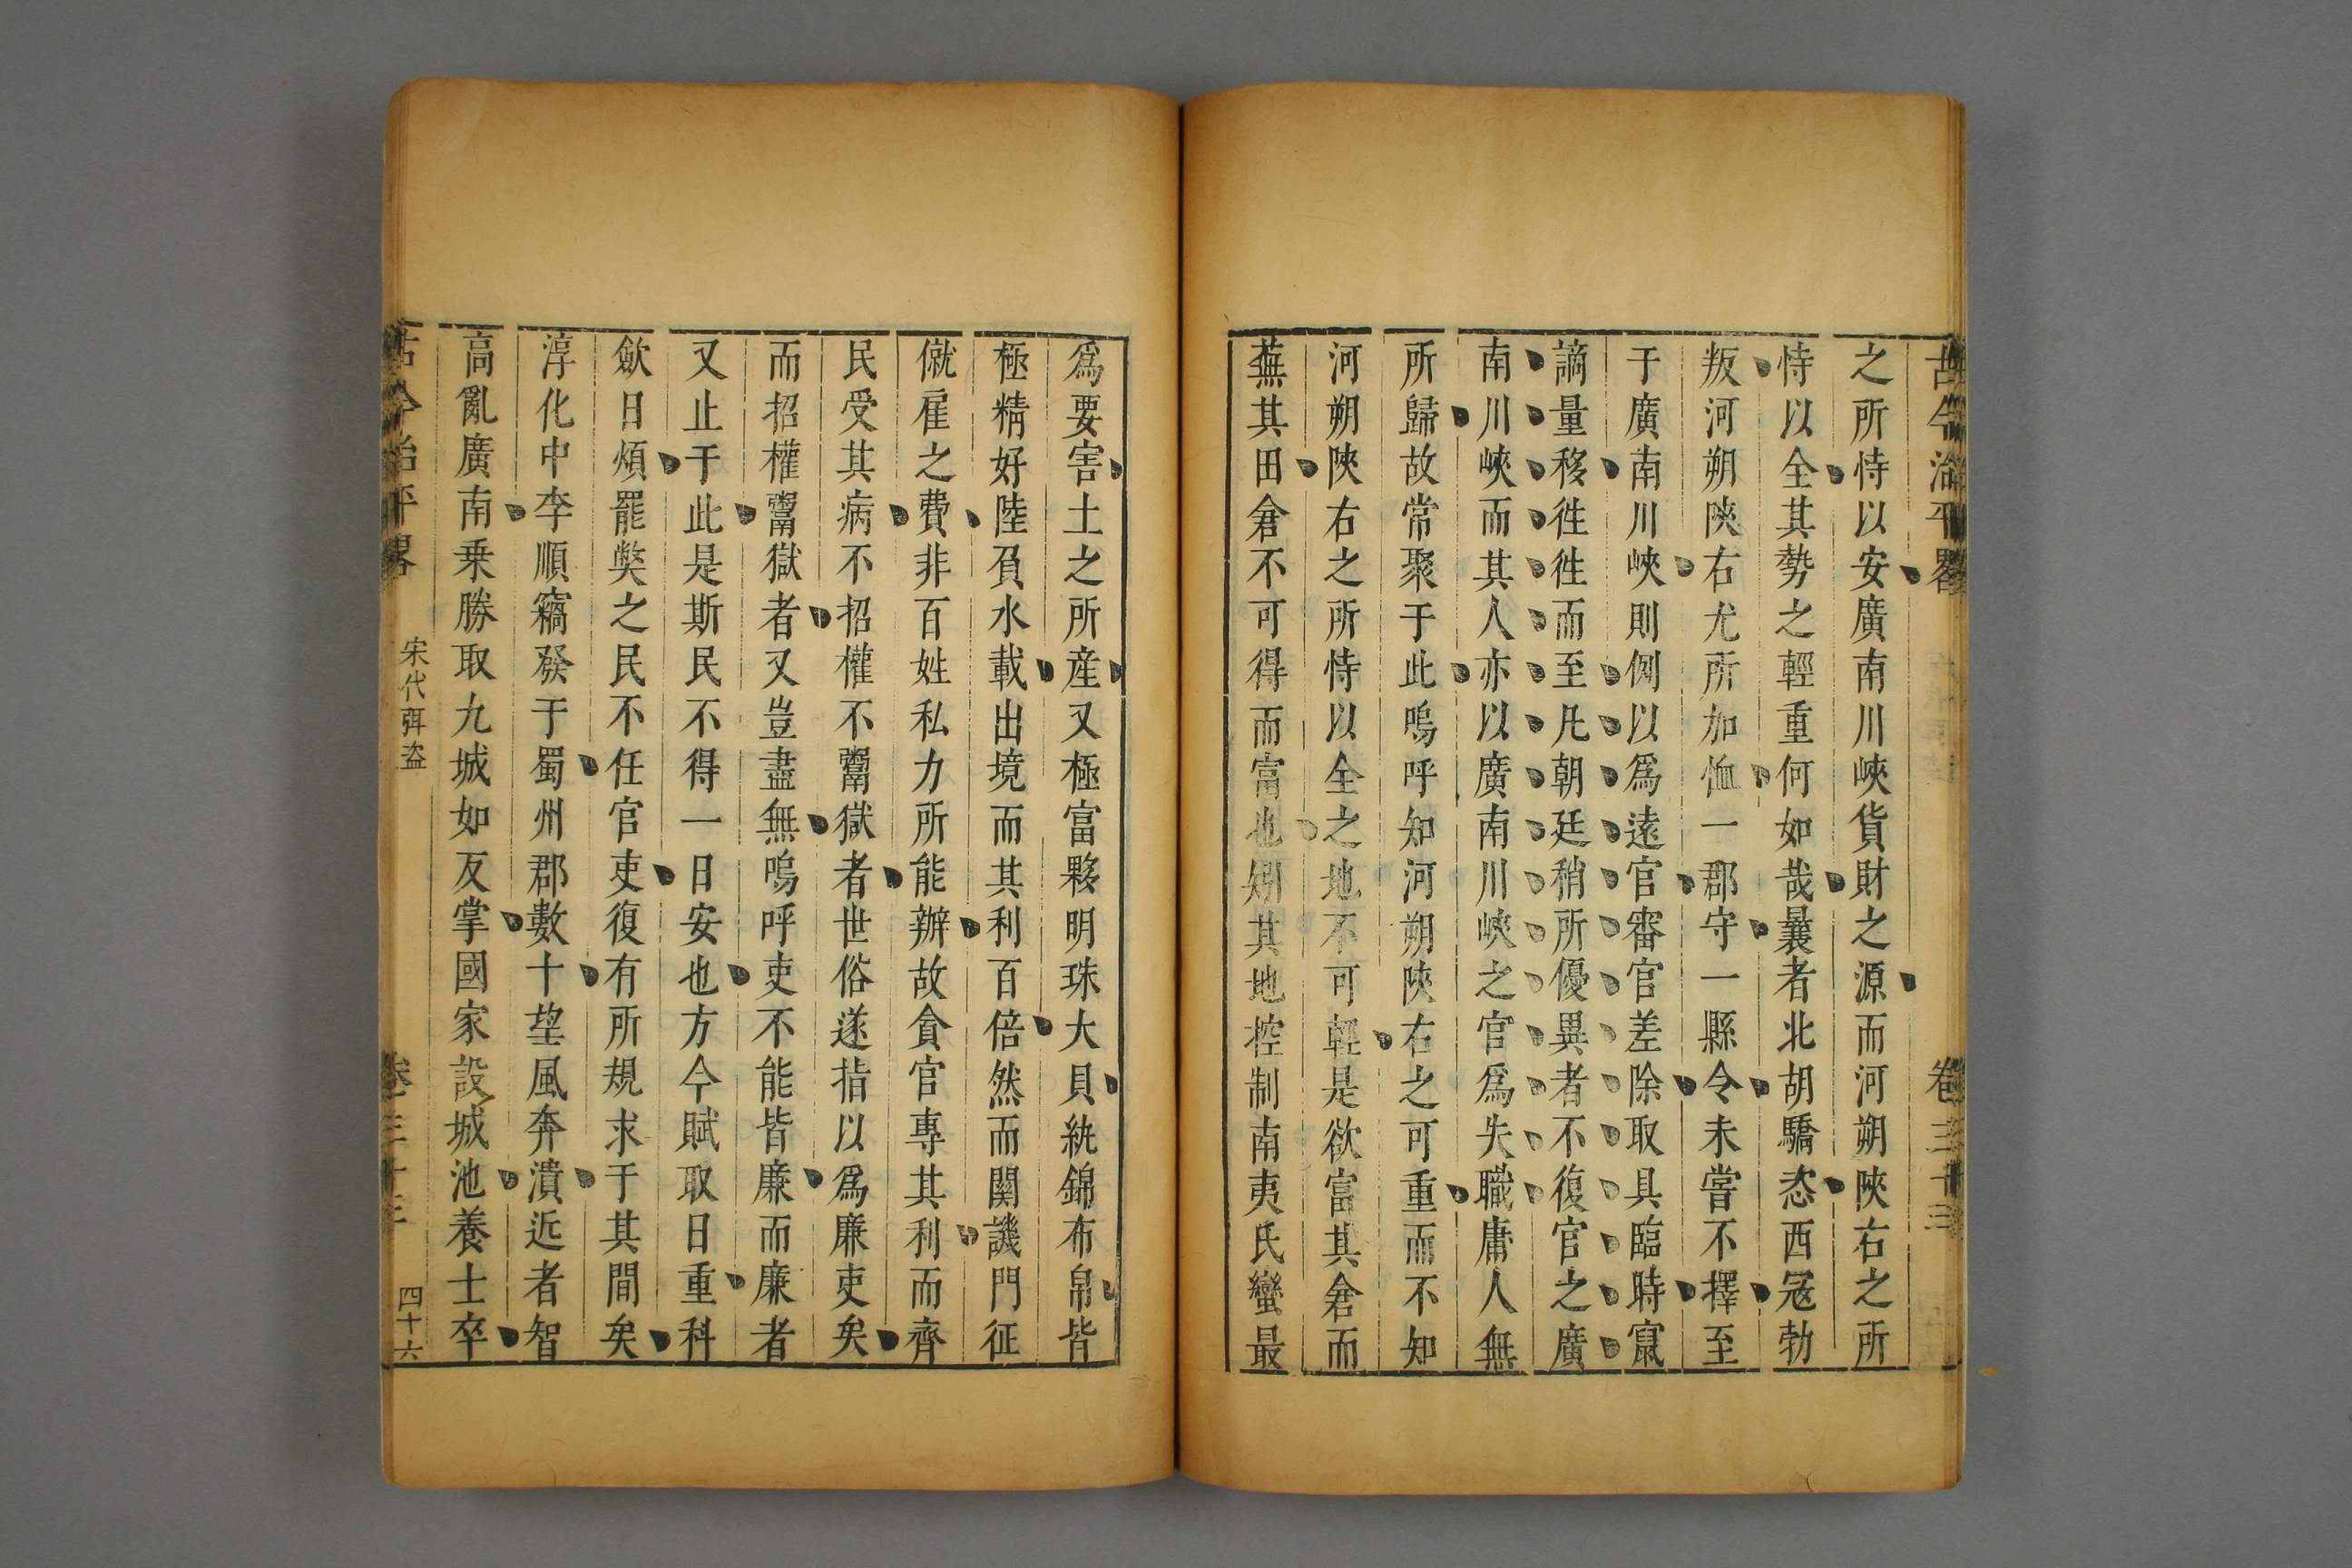 古今治平畧 卷三十三
之所恃以安廣南川峽貨財之源而河朔陝右之所
恃以全其勢之輕重何如哉曩者北胡驕恣西冦勃
叛河朔陝右尤所加恤一郡守一縣令未嘗不擇至
于廣南川峽則例以爲逺官審官差除取具臨時竄
謫量移徃徃而至凡朝廷稍所優異者不復官之廣
南川峽而其人亦以廣南川峽之官爲失職庸人無
所歸故常聚于此嗚呼知河朔陝右之可重而不知
河朔陝右之所恃以全之地不可輕是欲富其倉而
蕪其田倉不可得而富也矧其地控制南夷氐蠻最
爲要害土之所産又極富夥明珠大貝紈錦布帛皆
極精好陸負水載出境而其利百倍然而關譏門征
僦雇之費非百姓私力所能辦故貪官專其利而齊
民受其病不招權不鬻獄者世俗遂指以爲廉吏矣
而招權鬻獄者又豈盡無嗚呼吏不能皆廉而廉者
又止于此是斯民不得一日安也方今賦取日重科
歛日煩罷獘之民不任官吏復有所規求于其間矣
淳化中李順竊發于蜀州郡數十望風奔潰近者智
高亂廣南乗勝取九城如反掌國家設城池養士卒
古今治平畧 宋代弭盗 卷三十三 四十六